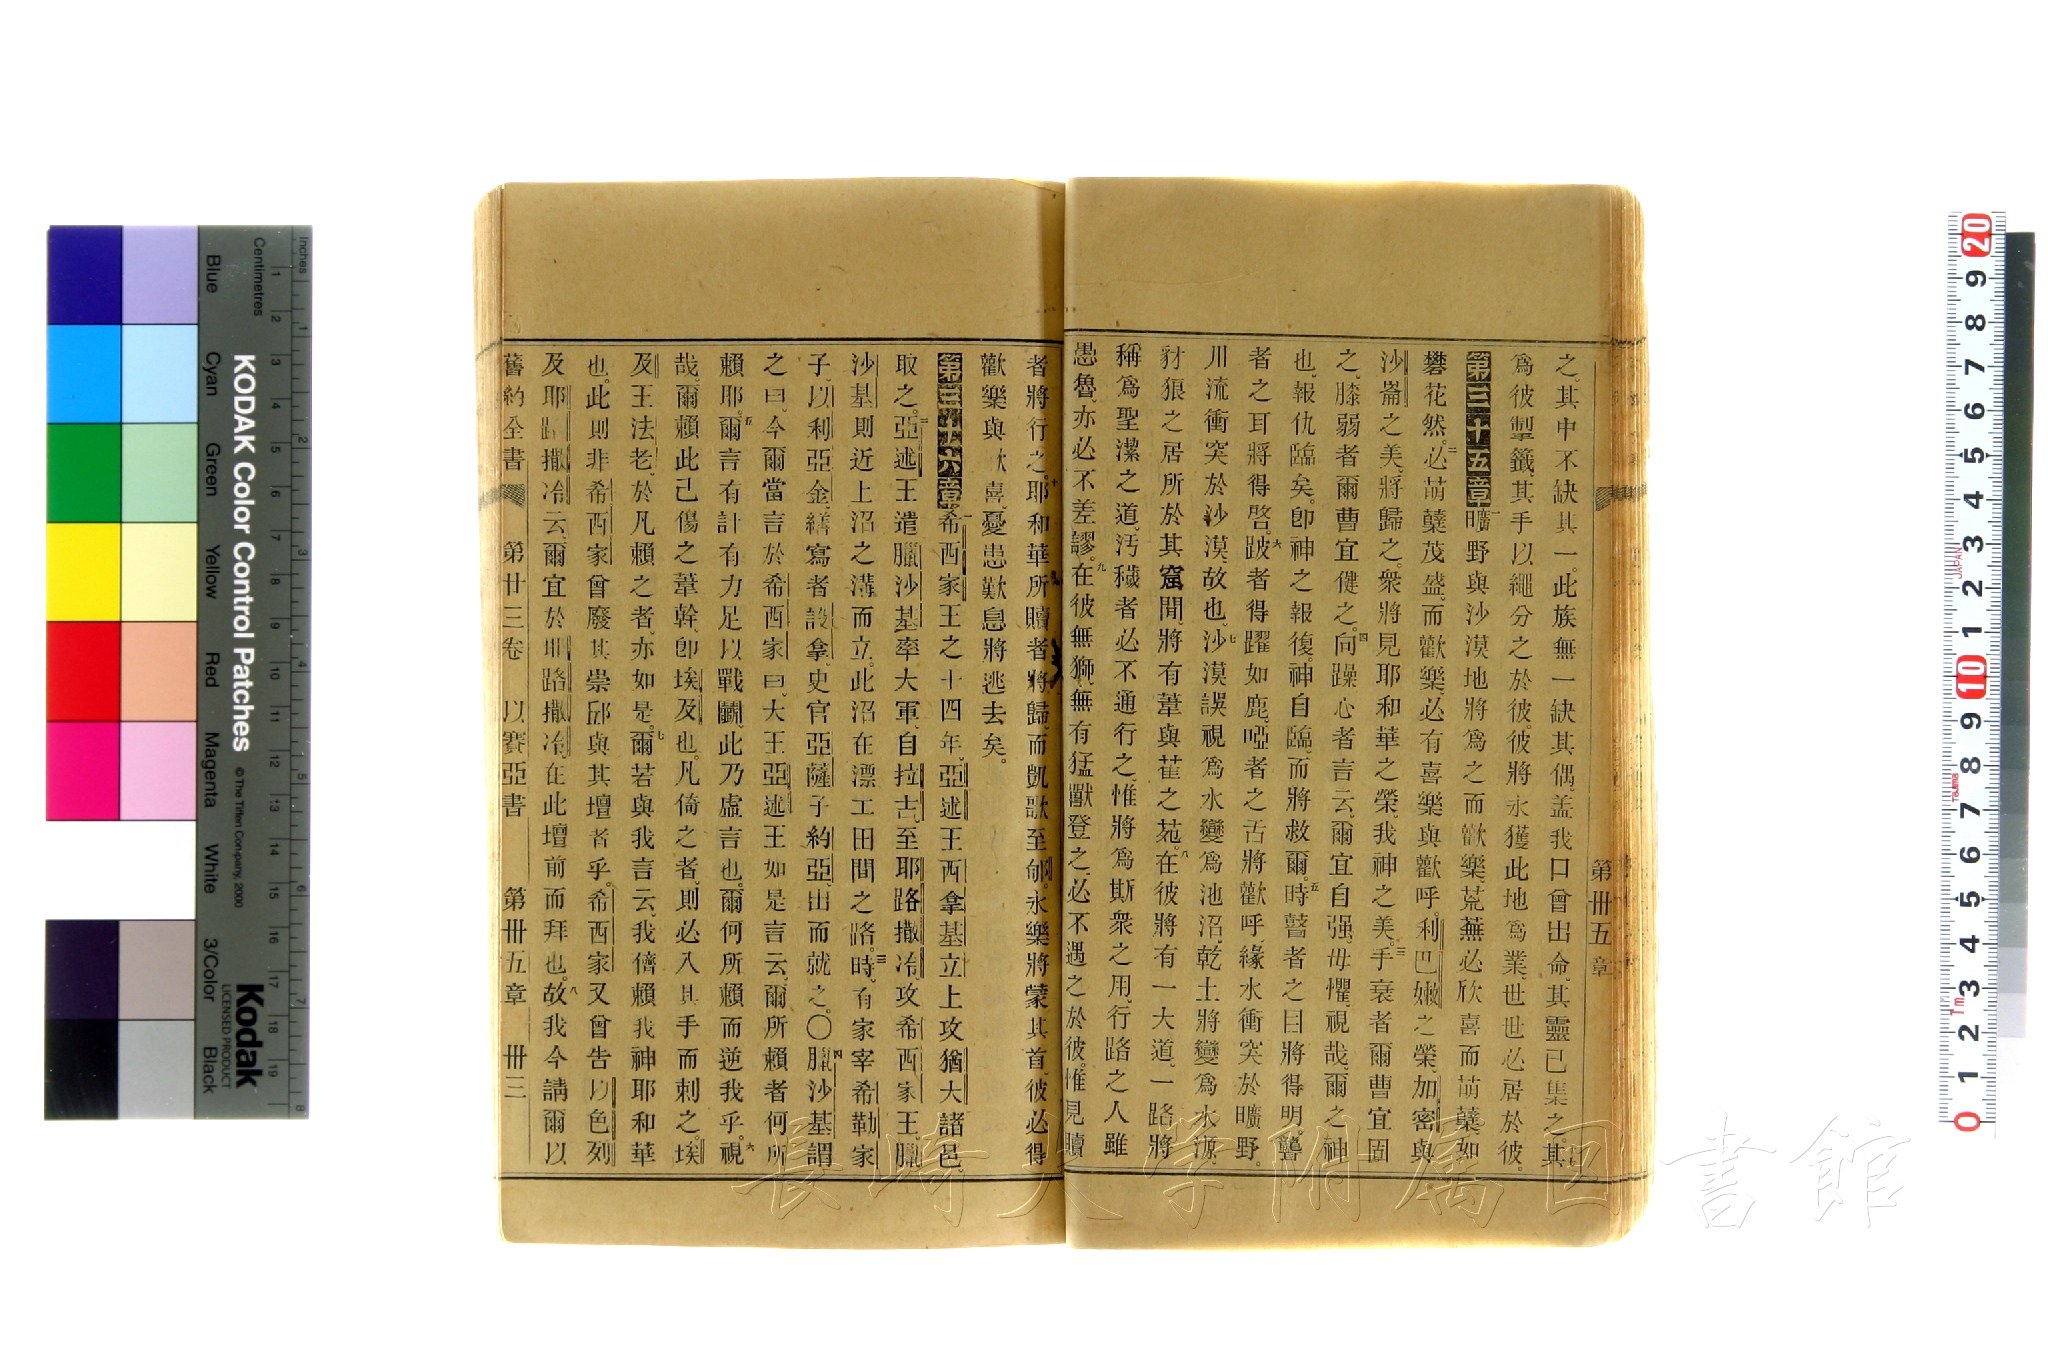 第卅五章
之、其中不缺其一。此族無一缺其偶、盖我口曾出命、其靈已集之。其
爲彼掣籤、其手以繩分之於彼。彼將永獲此地爲業、世世必居於彼。
第三十五章 一曠野與沙漠地將爲之而歡樂、荒蕪必欣喜而萌蘖如
礬花然。二必萌蘖茂盛、而歡樂、必有喜樂與歡呼。利巴嫩之榮、加密與
沙崙之美、將歸之。衆將見耶和華之榮、我神之美。三手衰者爾曹宜固
之、膝弱者爾曹宜健之。四向躁心者言云、爾宜自强、毋懼、視哉、爾之神
也、報仇臨矣。卽神之報復。神自臨、而將救爾。五時瞽者之目將得明。聾
者之耳將得啓。六跛者得躍如鹿、啞者之舌將歡呼、緣水衝突於曠野。
川流衝突於沙漠、故也。七沙漠誤視爲水變爲池沼、乾土將變爲水源、
豺狼之居所於其窟間、將有葦與萑之苑。八在彼將有一大道。一路將
稱爲聖潔之道、汚穢者必不通行之、惟將爲斯衆之用、行路之人雖
愚魯、亦必不差謬。九在彼無獅、無有猛獸登之、必不遇之於彼。惟見贖
者將行之。十耶和華所贖者將歸、而凱歌至郇。永樂將蒙其首、彼必得
歡樂與歡喜、憂患歎息將逃去矣。
第三十六章 一希西家王之十四年、亞述王西拿基立上攻猶大諸邑、
取之。二亞述王遣臘沙基率大軍、自拉古、至耶路撒冷、攻希西家王。臘
沙基則近上沼之溝而立。此沼在漂工田間之路。三時、有家宰希勒家
子、以利亞金、繕寫者設拿、史官亞薩子約亞、出而就之。〇四臘沙基謂
之曰、今爾當言於希西家曰、大王亞述王如是言云、爾所賴者何所
賴耶。五爾言有計有力足以戰鬭、此乃虛言也。爾何所賴而逆我乎。六視
哉、爾賴此已傷之葦幹、卽埃及也。凡倚之者、則必入其手而刺之。埃
及王法老、於凡賴之者、亦如是。七爾若與我言云、我儕賴我神耶和華
也。此則非希西家曾廢其崇邱與其壇者乎。希西家又曾告以色列
及耶路撒冷云、爾宜於耶路撒冷、在此壇前而拜也。八故我今請爾以
舊約全書 第廿三卷 以賽亞書 第卅五章 卅三
KODAK Color Control Patches
© The Tiffen Company, 2000
Kodak
LICENSED PRODUCT
Inches
Centimetres
Blue Cyan Green Yellow Red Magenta White 3/Color Black
長崎大学附属図書館